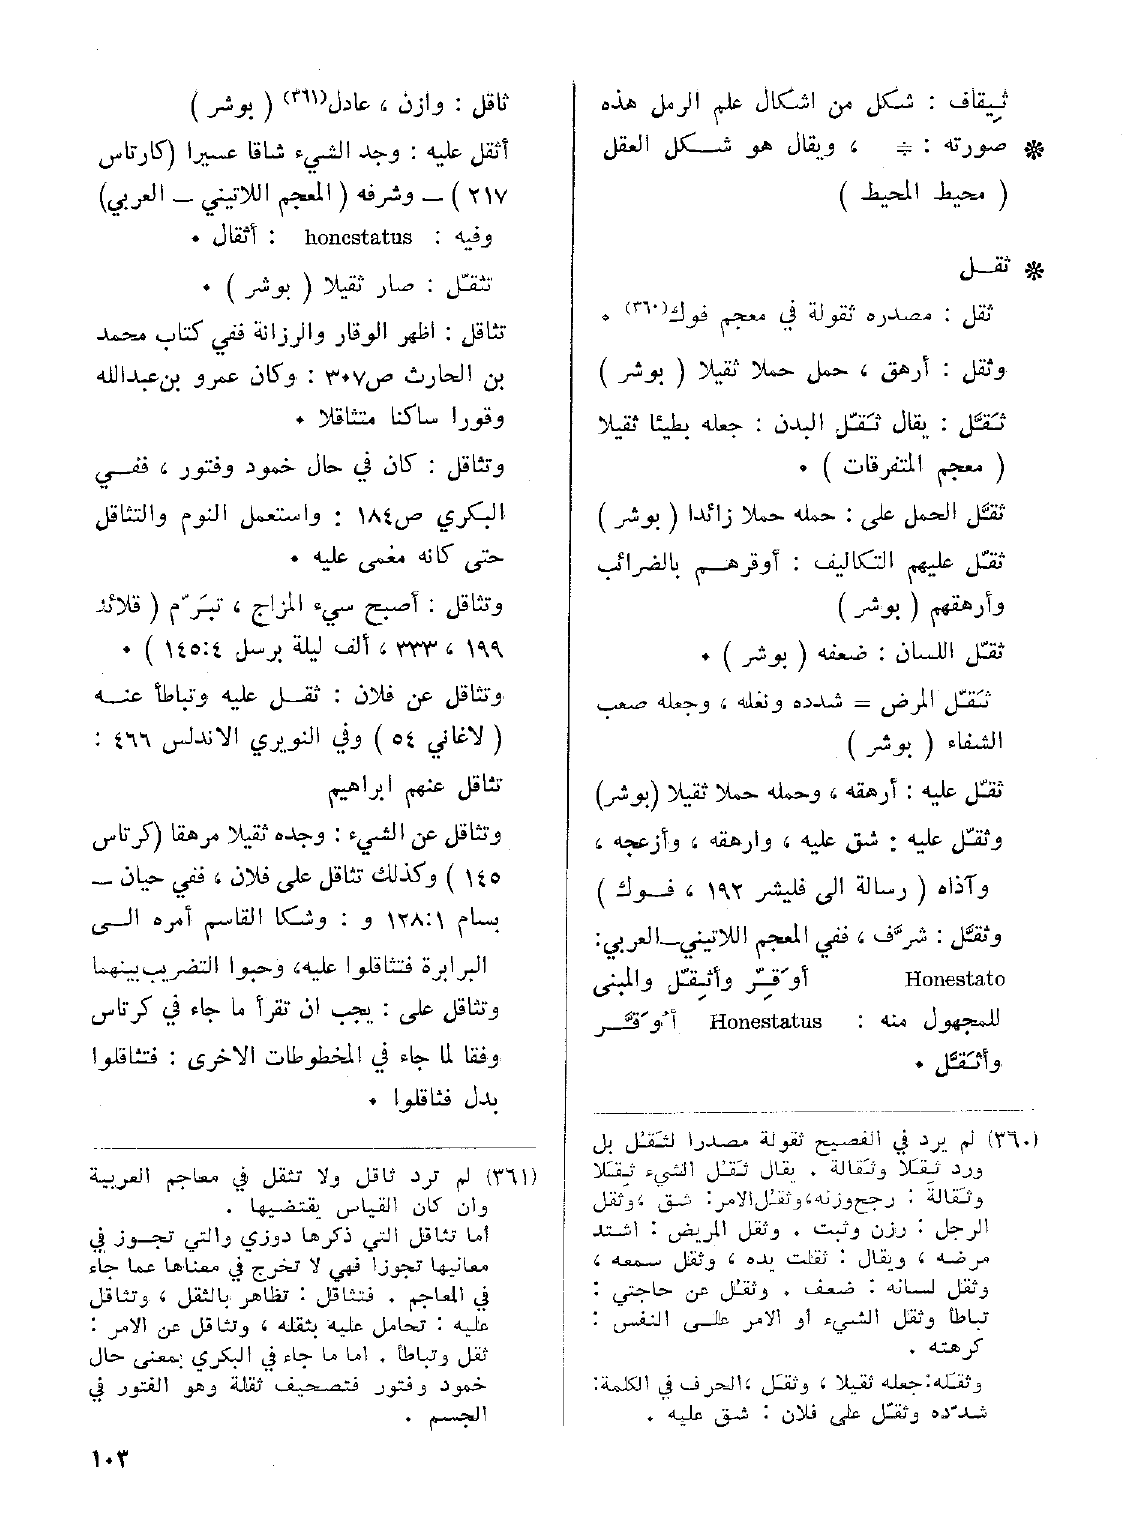 ثِيقاف : شكل من اشكال علم الرمل هذه
* صورته : ÷ ، ويقال هو شكل العقل
( محيط المحيط )
* ثقل
ثقل : مصدره ثقولة في معجم فوك(٣٦٠) .
وثقل : أرهق ، حمل حملا ثقيلا ( بوشر )
ثَقَّل : يقال ثَقّل البدن : جعله بطيئا ثقيلا
( معجم المتفرقات ) .
ثقَّل الحمل على : حمله حملا زائدا ( بوشر )
ثقّل عليهم التكاليف : أوقرهم بالضرائب
وأرهقهم ( بوشر )
ثقّل اللسان : ضعفه ( بوشر ) .
ثَقّل المرض = شدده وثقله ، وجعله صعب
الشفاء ( بوشر )
ثقّل عليه : أرهقه ، وحمله حملا ثقيلا (بوشر)
وثقّل عليه : شق عليه ، وارهقه ، وأزعجه ،
وآذاه ( رسالة الى فليشر ١٩٢ ، فوك )
وثقَّل : شرَّف ، ففي المعجم اللاتيني-العربي:
Honestato أوَقِّر وأثِقّل والمبنى
للمجهول منه : Honestatus أُوَقَّر
وأثَقَّل .
(٣٦٠) لم يرد في الفصيح ثقولة مصدرا لثَقُل بل
ورد ثِقَلا وثَقالة . يقال ثَقُل الشيء ثِقَلا
وثَقالة : رجح وزنه، وثقل الامر: شق ، وثقل
الرجل : رزن وثبت . وثقل المريض : اشتد
مرضه ، ويقال : ثقلت يده ، وثقل سمعه ،
وثقل لسانه : ضعف . وثقل عن حاجتي :
تباطأ وثقل الشيء أو الامر على النفس :
كرهته .
وثقله: جعله ثقيلا ، وثقّل ، الحرف في الكلمة:
شدّده وثقّل على فلان : شق عليه .
ثاقل : وازن ، عادل(٣٦١) ( بوشر )
أثقل عليه : وجد الشيء شاقا عسيرا (كارتاس
٢١٧ ) — وشرفه ( المعجم اللاتيني — العربي)
وفيه : honcstatus : أثقال .
تثقّل : صار ثقيلا ( بوشر ) .
تثاقل : اظهر الوقار والرزانة ففي كتاب محمد
بن الحارث ص٣٠٧ : وكان عمرو بن عبدالله
وقورا ساكنا متثاقلا .
وتثاقل : كان في حال خمود وفتور ، ففي
البكري ص١٨٤ : واستعمل النوم والتثاقل
حتى كانه مغمى عليه .
وتثاقل : أصبح سيء المزاج ، تبَرّم ( قلائد
١٩٩ ، ٣٣٣ ، ألف ليلة برسل ٤:١٤٥ ) .
وتثاقل عن فلان : ثقل عليه وتباطأ عنه
( لاغاني ٥٤ ) وفي النويري الاندلس ٤٦٦ :
تثاقل عنهم ابراهيم
وتثاقل عن الشيء : وجده ثقيلا مرهقا (كرتاس
١٤٥ ) وكذلك تثاقل على فلان ، ففي حيان —
بسام ١:١٢٨ و : وشكا القاسم أمره الى
البرابرة فتثاقلوا عليه، وحبوا التضريب بينهما
وتثاقل على : يجب ان تقرأ ما جاء في كرتاس
وفقا لما جاء في المخطوطات الاخرى : فتثاقلوا
بدل فثاقلوا .
(٣٦١) لم ترد ثاقل ولا تثقل في معاجم العربية
وان كان القياس يقتضيها .
أما تثاقل التي ذكرها دوزي والتي تجوز في
معانيها تجوزا فهي لا تخرج في معناها عما جاء
في المعاجم . فتثاقل : تظاهر بالثقل ، وتثاقل
عليه : تحامل عليه بثقله ، وتثاقل عن الامر :
ثقل وتباطأ . اما ما جاء في البكري بمعنى حال
خمود وفتور فتصحيف ثقلة وهو الفتور في
الجسم .
١٠٣